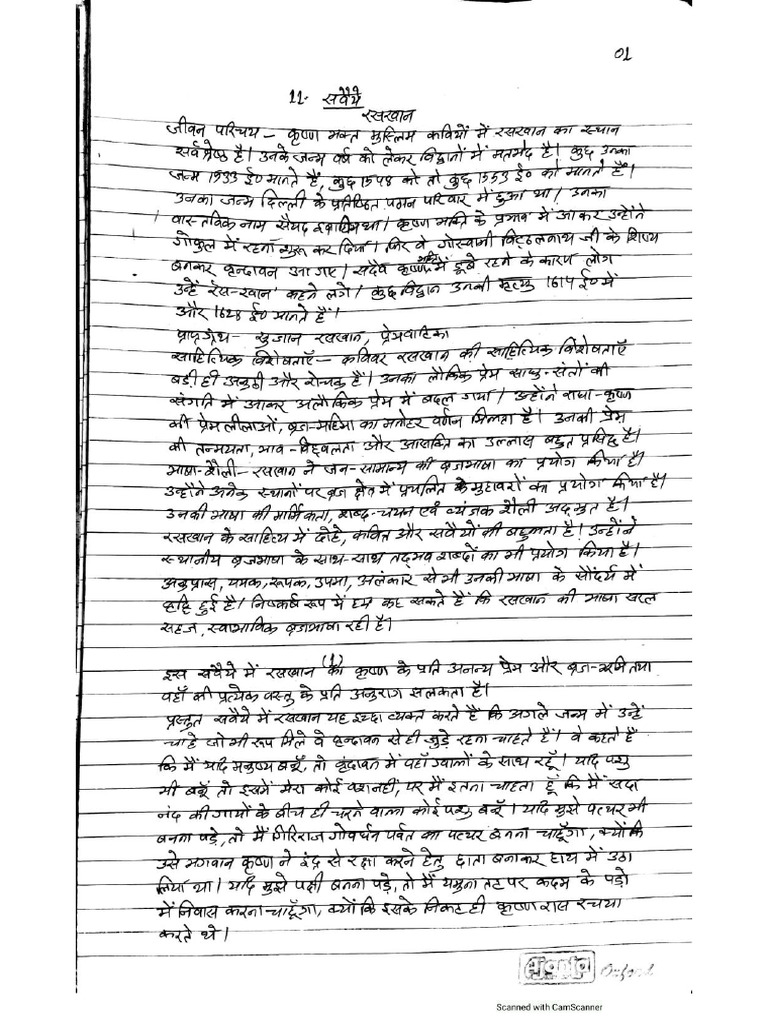 01
11. सवैये
रसखान
जीवन परिचय – कृष्ण भक्त मुस्लिम कवियों में रसखान का स्थान
सर्वश्रेष्ठ है। उनके जन्म वर्ष को लेकर विद्वानों में मतभेद है। कुछ उनका
जन्म 1533 ई० मानते हैं, कुछ 1548 को तो कुछ 1553 ई० को मानते हैं।
उनका जन्म दिल्ली के प्रतिष्ठित पठान परिवार में हुआ था। उनका
वास्तविक नाम सैयद इब्राहिम था। कृष्ण भक्ति के प्रभाव में आकर उन्होंने
गोकुल में रहना शुरू कर दिया। फिर वे गोस्वामी विट्ठलनाथ जी के शिष्य
बनकर वृन्दावन आ गए। सदैव कृष्ण भक्ति में डूबे रहने के कारण लोग
उन्हें 'रस-खान' कहते लगे। कुछ विद्वान उनकी मृत्यु 1614 ई० में
और 1628 ई० मानते हैं।
प्रा० ग्रंथ- सुजान रसखान, प्रेमवाटिका
साहित्यिक विशेषताएँ – कविवर रसखान की साहित्यिक विशेषताएँ
बड़ी ही अनूठी और रोचक हैं। उनका लौकिक प्रेम साधु-संतों की
संगति में आकर अलौकिक प्रेम में बदल गया। उन्होंने राधा-कृष्ण
की प्रेम लीलाओं, ब्रज-महिमा का मनोहर वर्णन मिलता है। उनकी प्रेम
की तन्मयता, भाव-विह्वलता और आसक्ति का उल्लास बहुत प्रसिद्ध है।
भाषा-शैली- रसखान ने जन-सामान्य की ब्रजभाषा का प्रयोग किया है।
उन्होंने अनेक स्थानों पर ब्रज क्षेत्र में प्रचलित के मुहावरों का प्रयोग किया है।
उनकी भाषा की मार्मिकता, शब्द-चयन एवं व्यंजक शैली अद्भुत है।
रसखान के साहित्य में दोहे, कवित्त और सवैयों की बहुलता है। उन्होंने
स्थानीय ब्रजभाषा के साथ-साथ तद्भव शब्दों का भी प्रयोग किया है।
अनुप्रास, यमक, रूपक, उपमा, अलंकार से भी उनकी भाषा के सौंदर्य में
वृद्धि हुई है। निष्कर्ष रूप में हम कह सकते हैं कि रसखान की भाषा सरल
सहज, स्वाभाविक ब्रजभाषा रही है।
(1)
इस सवैये में रसखान का कृष्ण के प्रति अनन्य प्रेम और ब्रज-भूमि तथा
वहाँ की प्रत्येक वस्तु के प्रति अनुराग झलकता है।
प्रस्तुत सवैये में रसखान यह इच्छा व्यक्त करते हैं कि अगले जन्म में उन्हें
चाहे जो भी रूप मिले वे वृन्दावन से ही जुड़े रहना चाहते हैं। वे कहते हैं
कि मैं यदि मनुष्य बनूँ, तो वृंदावन में वहाँ ग्वालों के साथ रहूँ। यदि पशु
भी बनूँ तो इसमें मेरा कोई वश नहीं, पर मैं इतना चाहता हूँ कि मैं सदा
नंद की गायों के बीच ही चरने वाला कोई पशु बनूँ। यदि मुझे पत्थर भी
बनना पड़े, तो मैं गिरिराज गोवर्धन पर्वत का पत्थर बनना चाहूँगा, क्योंकि
उसे भगवान कृष्ण ने इंद्र से रक्षा करने हेतु छाता बनाकर हाथ में उठा
लिया था। यदि मुझे पक्षी बनना पड़े, तो मैं यमुना तट पर कदम के पेड़ो
में निवास करना चाहूँगा, क्योंकि इसके निकट ही कृष्ण रास रचया
करते थे।
Oxford
Scanned with CamScanner